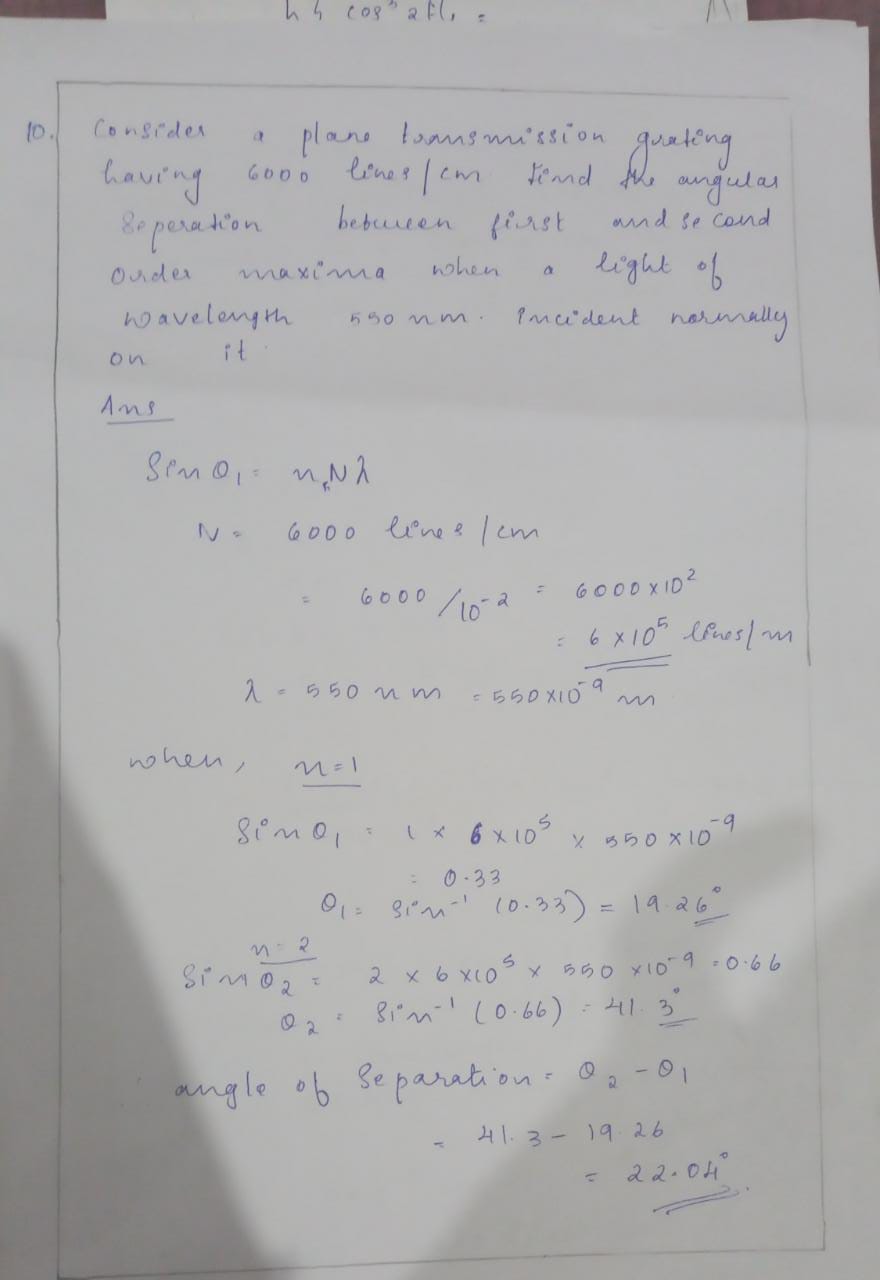 h h cos³ 2fl, =
10. Consider a plane transmission grating
having 6000 lines/cm find the angular
Seperation between first and second
order maxima when a light of
wavelength 550 nm. Incident normally
on it.
Ans
Sin θ₁ = n,Nλ
N = 6000 lines/cm
= 6000/10⁻² = 6000×10²
= 6×10⁵ lines/m
λ = 550 nm = 550×10⁻⁹ m
when, n=1
Sin θ₁ = 1 × 6×10⁵ × 550×10⁻⁹
= 0.33
θ₁ = Sin⁻¹ (0.33) = 19.26°
n=2
Sin θ₂ = 2 × 6×10⁵ × 550×10⁻⁹ = 0.66
θ₂ = Sin⁻¹ (0.66) = 41.3°
angle of Separation = θ₂ - θ₁
= 41.3 - 19.26
= 22.04°